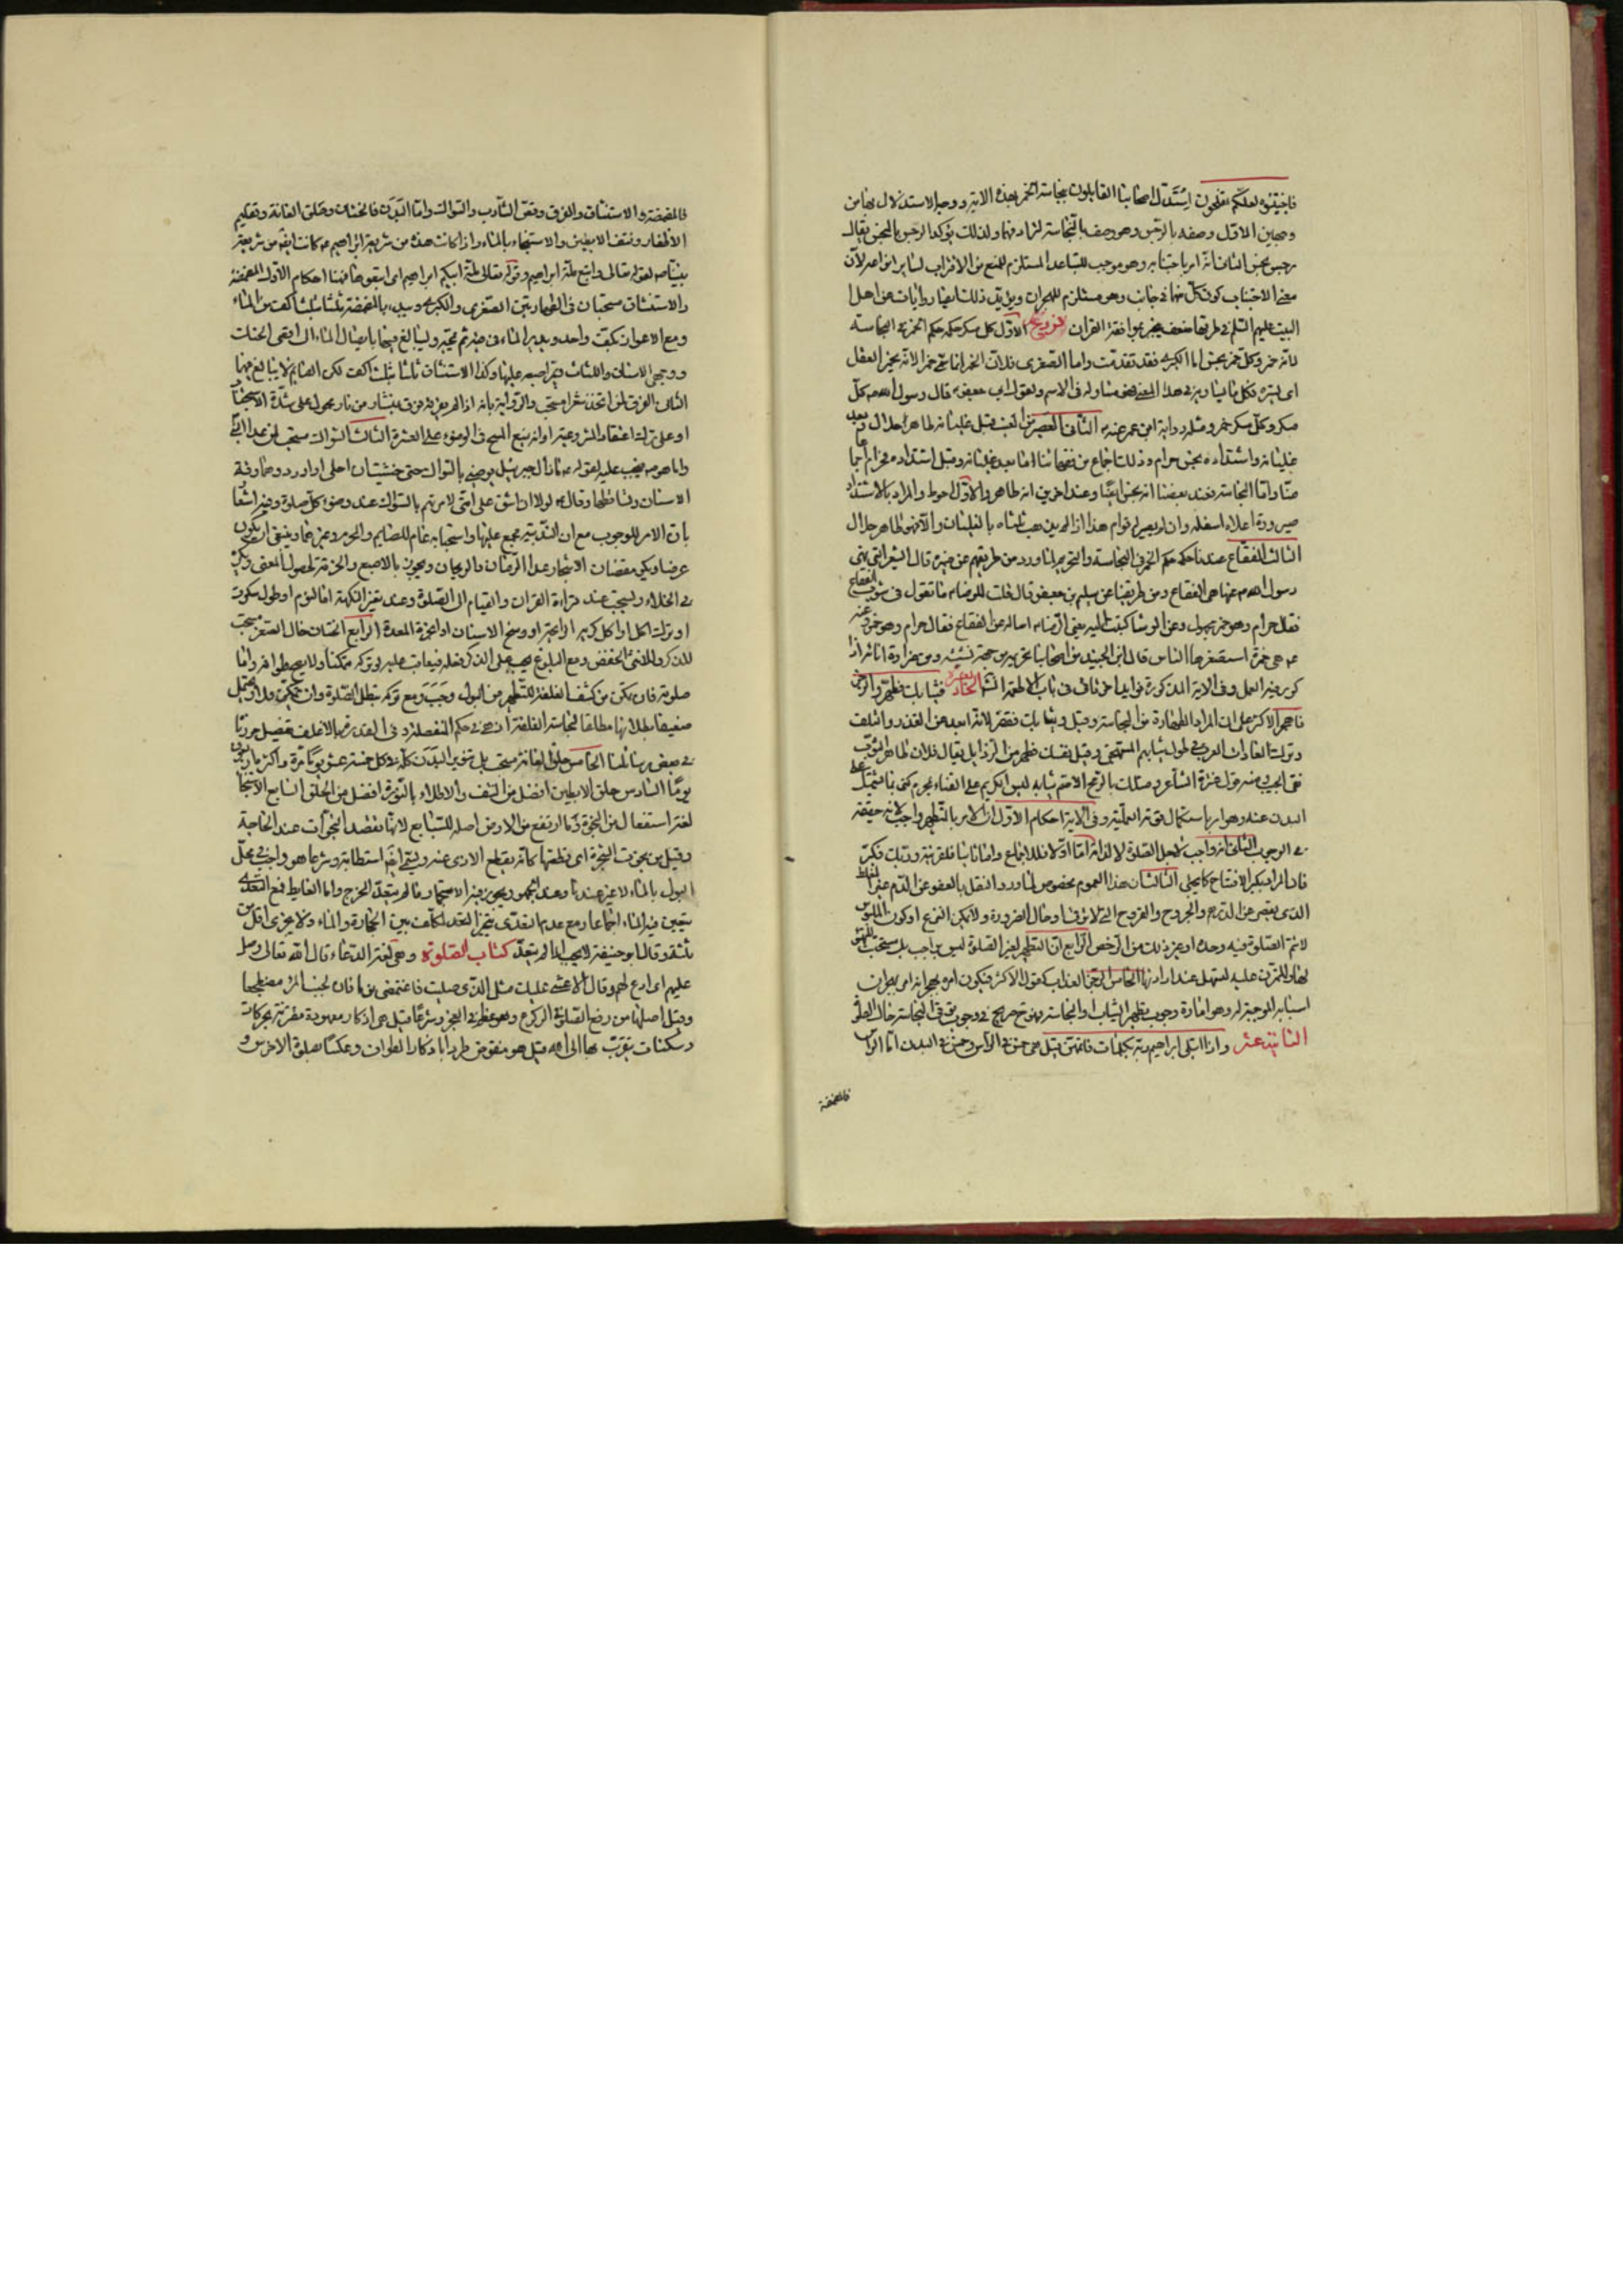 فاجتنبوه لعلكم تفلحون استدل اصحابنا القايلون بنجاسة الخمر بهذه الاية ووجه الاستدلال بها من
وجهين الاول وصفه بالرجس وهو وصف بالنجاسة لترادفهما ولذلك يؤكد الرجس بالنجس يقال
رجس نجس الثانى انه امر باجتنابه وهو موجب للتباعد المستلزم للمنع من الاقتراب لساير انواعه لان
معنى الاجتناب كون كل منهما فى جانب وهو مستلزم للهجران ويؤيد ذلك ايضا روايات عن اهل
البيت عليهم السلم فى طريقها ضعف ينجبر بموافقة القران فروع الاول كل مسكر حكمه حكم الخمر فى النجاسة
لانه خمر وكل خمر نجس اما الكبرى فقد تقدمت واما الصغرى فلان الخمر انما سمى خمرا لانه يخمر العقل
اى يستره فكل ما يساويه فى هذا المعنى فهو مساو له فى الاسم ولقول ابى جعفر ع قال رسول الله ص كل
مسكر وكل مسكر خمر ومثله رواية ابن عمر عنه ص الثانى العصير من العنب قبل غليانه طاهر حلال وبعد
غليانه واشتداده نجس حرام وذلك اجماع من فقهائنا اما بعد غليانه وقبل اشتداده فحرام اجماعا
منا واما النجاسة فعند بعضنا انه نجس ايضا وعند اخرين انه طاهر والاول احوط والمراد بالاشتداد
صيرورة اعلاه اسفله وان لم يصير له قوام هذا اذا لم يذهب ثلثاه بالغليان والا فهو طاهر حلال
الثالث الفقاع عندنا حكمه حكم الخمر فى النجاسة والتحريم لما ورد من طريقهم عن ضمرة قال الغبيراء التى نهى
رسول الله ص عنها هى الفقاع ومن طريقنا عن سليمن بن جعفر قال قلت للرضا ع ما تقول فى شرب الفقاع
فقال حرام وهو خمر مجهول وعن الوشا كتبت اليه يعنى الرضا ع اساله عن الفقاع فقال حرام وهو خمر وعنه
ع هى خمرة استصغرها الناس قال ابن الجنيد من اصحابنا تحريمه من جهة نشيشه ومن ضراوة انائه اذا
كرر فيه العمل وفى الاية المذكورة فوايد اخر تاتى فى باب الاطعمة انشا الحادية عشر وثيابك فطهر والرجز
فاهجر الاكثر على ان المراد الطهارة من النجاسة وقيل وثيابك فقصر لانه ابعد عن القذر واتلف
وترك العادات العرب فى طول ثيابهم المستهجن وقيل نفسك فطهر من الرذايل يقال فلان طاهر الثوب
نقى الجيب ومنه قول عنترة الشاعر وشككت بالرمح الاصم ثيابه ليس الكريم على القنا بمحرم كنى بما اشتمل على
البدن عنه وهو امر باستكمال قوته العملية وفى الاية احكام الاول ان الامر بالتطهير واجب لانه حقيقة
فى الوجوب الثانى انه واجب لاجل الصلوة لا لذاته اما اولا فللاجماع واما ثانيا فلقرينة وربك فكبر
فان المراد تكبير الافتتاح كما يجئ الثالث ان هذا العموم مخصوص لما ورد النقل بالعفو عن الدم غير المغلظ
الذى يقصر عن الدرهم والجروح والقروح التى لا ترقى او حال الضرورة ولا يمكن النزع او كون الملبوس
لا تتم الصلوة فيه وحده او غير ذلك من الرخص الرابع ان التطهير لغير الصلوة ليس بواجب بل مستحب للتهيؤ
لها والتمرن عليه ليسهل عند ارادتها الخامس الرجز العذاب كقول الاكثر فيكون امره بهجرانه امر بهجران
اسبابه الموجبة له وهو امارة وجوب تطهير الثياب او النجاسة فهو صريح فى وجوب توقى النجاسة حال الصلوة
الثانية عشر واذ ابتلى ابراهيم ربه بكلمات فاتمهن قيل هى خمس فى الراس وخمس فى البدن اما الراس
فالمضمضة
فالمضمضة والاستنشاق والفرق وقص الشارب والسواك واما البدن فالختان وحلق العانة وتقليم
الاظفار ونتف الابطين والاستنجاء بالماء واذا كانت هذه من شريعة ابراهيم ع كانت ايضا من شريعة
نبينا ص لقوله تعالى واتبع ملة ابراهيم وقوله تعالى ملة ابيكم ابراهيم اى اتبعوها فهنا احكام الاول المضمضة
والاستنشاق مستحبان فى الطهارتين الصغرى والكبرى ويبدء بالمضمضة ثلثا بثلث اكف من الماء
ومع الاعواز بكف واحد ويدير الماء فى فيه ثم يمجه وليبالغ فيها بايصال الماء الى اقصى الحنك
ووجهى الاسنان واللثات ممرا اصبعه عليها وكذا الاستنشاق ثلثا بثلث اكف لكن الصايم لا يبالغ فيهما
الثانى الفرق لمن اتخذ شعرا مستحب والرواية بانه اذا لم يفرقه فرق بمنشار من نار محمول على شدة الاستحباب
او على ترك اعتقاد المشروعية او انه يمنع المسح فى الوضوء على البشرة الثالث السواك مستحب لمن عدا النبى
واما هو ص فيجب عليه لقوله ص ما زال جبرئيل يوصينى بالسواك حتى خشيت ان احفى او ادرد وهما رقة
الاسنان وتساقطها وقال ص لولا ان اشق على امتى لامرتهم بالسواك عند وضوء كل صلوة وفيه اشعار
بان الامر للوجوب مع ان الندبية مجمع عليها واستحبابه عام للصايم والمحرم وغيرهما وينبغى ان يكون
عرضا ويكون بقضبان الاشجار عدا الرمان والريحان ويجوز بالاصبع والخرقة لحصول المعنى ويكره
فى الخلاء ويستحب عند قراءة القران والقيام الى الصلوة وعند تغير النكهة اما لنوم او طول سكوت
او ترك اكل او اكل كريه الرايحة او وسخ الاسنان او ابخرة المعدة الرابع الختان حال الصغر مستحب
للذكر وللانثى الخفض ومع البلوغ يجب على الذكر فعله فيعاقب عليه بتركه متمكنا ولا يصح طوافه واما
صلوته فان تمكن من كشف الغلفة للتطهير من البول وجب ومع تركه تبطل الصلوة وان لم يتمكن فلا وقيل
ضعيفا بطلانها مطلقا لنجاسة الغلفة اذ هى فى حكم المنفصلة وفى القذر فيها الاغلف تفصيل حررناه
فى بعض رسائلنا الخامس حلق العانة مستحب بل تنوير البدن كله فى كل خمسة عشر يوما مرة واكثره اربعون
يوما السادس حلق الابطين افضل من النتف والاطلاء بالنورة افضل من الحلق السابع الاستنجاء
لغة استفعال من النجوة وهى ما ارتفع من الارض اصله للسباع لانها تقصد النجوات عند الحاجة
وقيل من نجوت الشجرة اى قطعتها كانه يقطع الاذى عنه ويسمى ايضا استطابة وشرعا هو واجب فى محل
البول بالماء لا غير عندنا وعند الجمهور يجوز فيه الاستجمار ما لم يتعد المخرج واما الغايط فمع التعدى
يتعين فيه الماء اجماعا ومع عدم التعدى يتخير المكلف بين الحجارة والماء ولا يجزى اقل من
ثلثة وقال ابو حنيفة لا يجب اذا لم يتعد كتاب الصلوة وهى لغة الدعاء قال الله تعالى وصل
عليهم اى ادع لهم وقال الاعشى عليك مثل الذى صليت فاغتمضى نوما فان لجنب المرء مضطجعا
وقيل اصلها من رفع الصلا فى الركوع وهو عظم فى العجز وشرعا قيل هى اذكار معهودة مقترنة بحركات
وسكنات يتقرب بها الى الله قيل هو منقوض طردا باذكار الطواف وعكسا بصلوة الاخرس و